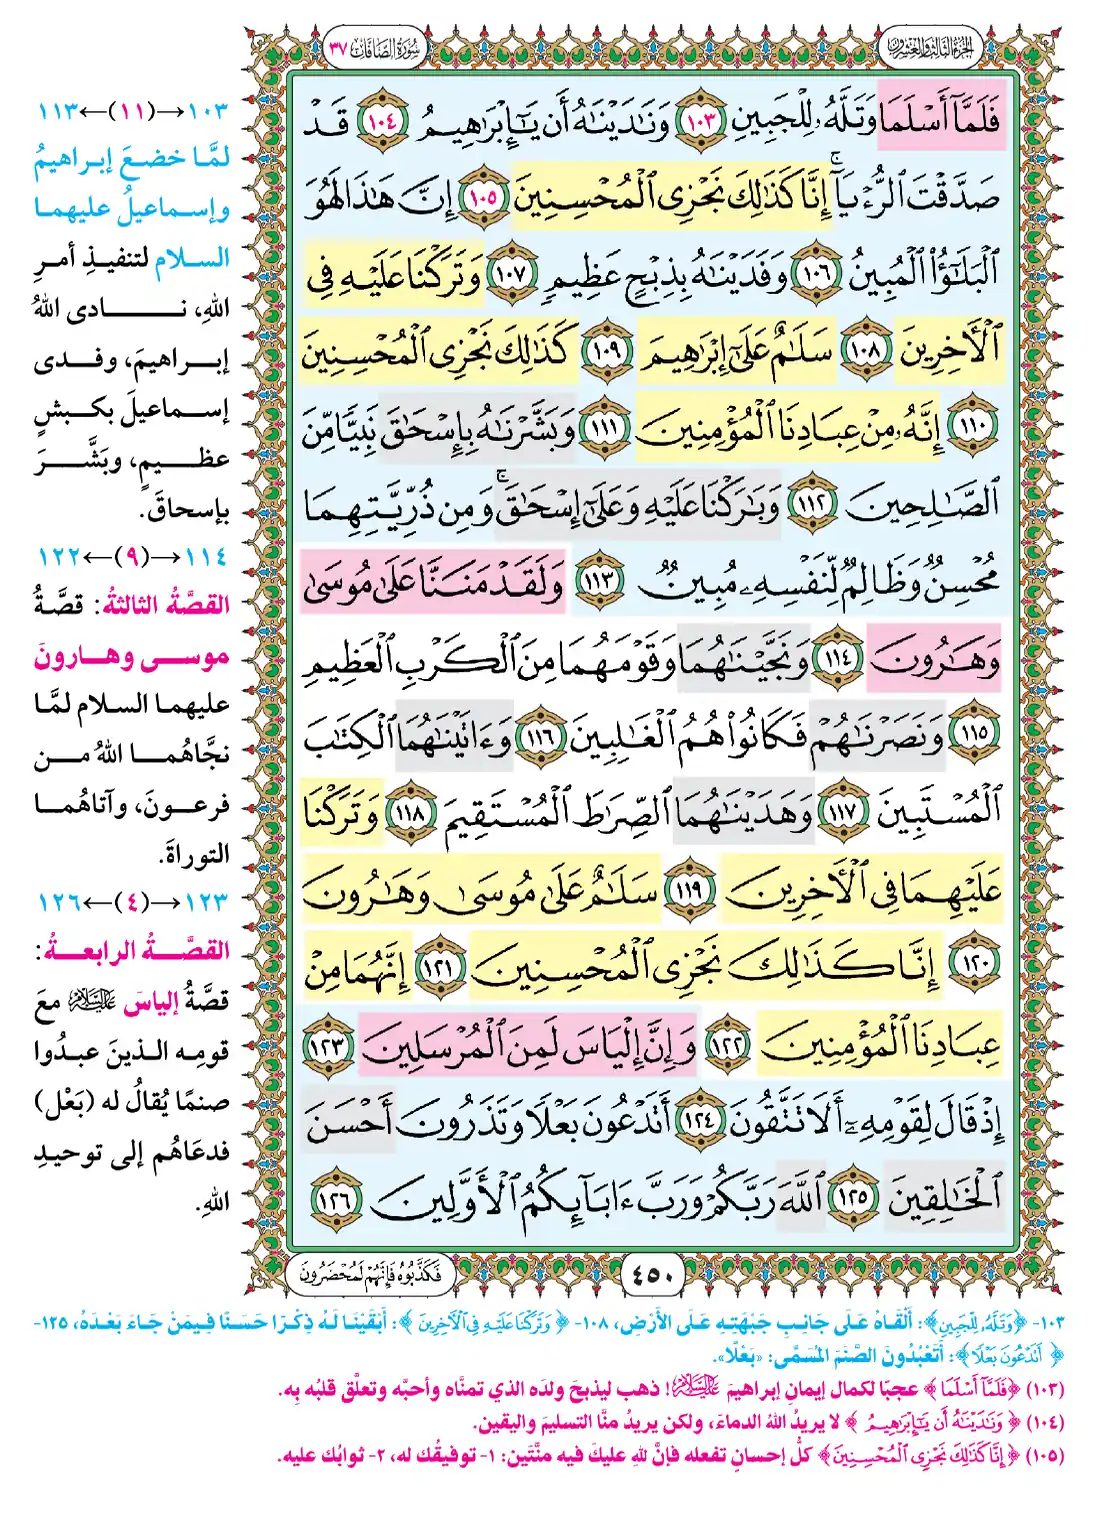 الجزء الثالث والعشرون
سورة الصافات ٣٧
فَلَمَّآ أَسْلَمَا وَتَلَّهُۥ لِلْجَبِينِ ١٠٣ وَنَٰدَيْنَٰهُ أَن يَٰٓإِبْرَٰهِيمُ ١٠٤ قَدْ
صَدَّقْتَ ٱلرُّءْيَآ ۚ إِنَّا كَذَٰلِكَ نَجْزِى ٱلْمُحْسِنِينَ ١٠٥ إِنَّ هَٰذَا لَهُوَ
ٱلْبَلَٰٓؤُا۟ ٱلْمُبِينُ ١٠٦ وَفَدَيْنَٰهُ بِذِبْحٍ عَظِيمٍ ١٠٧ وَتَرَكْنَا عَلَيْهِ فِى
ٱلْـَٔاخِرِينَ ١٠٨ سَلَٰمٌ عَلَىٰٓ إِبْرَٰهِيمَ ١٠٩ كَذَٰلِكَ نَجْزِى ٱلْمُحْسِنِينَ
١١٠ إِنَّهُۥ مِنْ عِبَادِنَا ٱلْمُؤْمِنِينَ ١١١ وَبَشَّرْنَٰهُ بِإِسْحَٰقَ نَبِيًّا مِّنَ
ٱلصَّٰلِحِينَ ١١٢ وَبَٰرَكْنَا عَلَيْهِ وَعَلَىٰٓ إِسْحَٰقَ ۚ وَمِن ذُرِّيَّتِهِمَا
مُحْسِنٌ وَظَالِمٌ لِّنَفْسِهِۦ مُبِينٌ ١١٣ وَلَقَدْ مَنَنَّا عَلَىٰ مُوسَىٰ
وَهَٰرُونَ ١١٤ وَنَجَّيْنَٰهُمَا وَقَوْمَهُمَا مِنَ ٱلْكَرْبِ ٱلْعَظِيمِ
١١٥ وَنَصَرْنَٰهُمْ فَكَانُوا۟ هُمُ ٱلْغَٰلِبِينَ ١١٦ وَءَاتَيْنَٰهُمَا ٱلْكِتَٰبَ
ٱلْمُسْتَبِينَ ١١٧ وَهَدَيْنَٰهُمَا ٱلصِّرَٰطَ ٱلْمُسْتَقِيمَ ١١٨ وَتَرَكْنَا
عَلَيْهِمَا فِى ٱلْـَٔاخِرِينَ ١١٩ سَلَٰمٌ عَلَىٰ مُوسَىٰ وَهَٰرُونَ
١٢٠ إِنَّا كَذَٰلِكَ نَجْزِى ٱلْمُحْسِنِينَ ١٢١ إِنَّهُمَا مِنْ
عِبَادِنَا ٱلْمُؤْمِنِينَ ١٢٢ وَإِنَّ إِلْيَاسَ لَمِنَ ٱلْمُرْسَلِينَ ١٢٣
إِذْ قَالَ لِقَوْمِهِۦٓ أَلَا تَتَّقُونَ ١٢٤ أَتَدْعُونَ بَعْلًا وَتَذَرُونَ أَحْسَنَ
ٱلْخَٰلِقِينَ ١٢٥ ٱللَّهَ رَبَّكُمْ وَرَبَّ ءَابَآئِكُمُ ٱلْأَوَّلِينَ ١٢٦
٤٥٠
فَكَذَّبُوهُ فَإِنَّهُمْ لَمُحْضَرُونَ
١٠٣→(١١)←١١٣
لمَّا خضعَ إبراهيمُ
وإسماعيلُ عليهما
السلام لتنفيذِ أمرِ
اللهِ، نادى اللهُ
إبراهيمَ، وفدى
إسماعيلَ بكبشٍ
عظيمٍ، وبَشَّرَ
بإسحاقَ.
١١٤→(٩)←١٢٢
القصَّةُ الثالثةُ: قصَّةُ
موسى وهارونَ
عليهما السلام لمَّا
نجَّاهُما اللهُ من
فرعونَ، وآتاهُما
التوراةَ.
١٢٣→(٤)←١٢٦
القصَّةُ الرابعةُ:
قصَّةُ إلياسَ عليه السلام معَ
قومِه الذينَ عبدُوا
صنمًا يُقالُ له (بَعْل)
فدعَاهُم إلى توحيدِ
اللهِ.
١٠٣- ﴿وَتَلَّهُۥ لِلْجَبِينِ﴾: أَلْقَاهُ عَلَى جَانِبِ جَبْهَتِهِ عَلَى الأَرْضِ، ١٠٨- ﴿وَتَرَكْنَا عَلَيْهِ فِى ٱلْـَٔاخِرِينَ﴾: أَبْقَيْنَا لَهُ ذِكْرًا حَسَنًا فِيمَنْ جَاءَ بَعْدَهُ، ١٢٥-
﴿أَتَدْعُونَ بَعْلًا﴾: أَتَعْبُدُونَ الصَّنَمَ المُسَمَّى: «بَعْلًا».
(١٠٣) ﴿فَلَمَّآ أَسْلَمَا﴾ عجبًا لكمالِ إيمانِ إبراهيمَ عليه السلام! ذهب ليذبحَ ولدَه الذي تمنَّاه وأحبَّه وتعلَّق قلبُه بِه.
(١٠٤) ﴿وَنَٰدَيْنَٰهُ أَن يَٰٓإِبْرَٰهِيمُ﴾ لا يريدُ اللهُ الدماءَ، ولكن يريدُ منَّا التسليمَ واليقين.
(١٠٥) ﴿إِنَّا كَذَٰلِكَ نَجْزِى ٱلْمُحْسِنِينَ﴾ كلُّ إحسانٍ تفعله فإنَّ للهِ عليكَ فيه منَّتَين: ١- توفيقُك له، ٢- ثوابُك عليه.